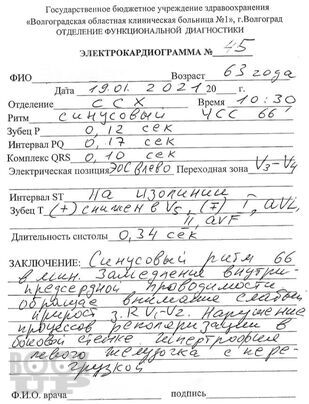 Государственное бюджетное учреждение здравоохранения
«Волгоградская областная клиническая больница №1», г.Волгоград
ОТДЕЛЕНИЕ ФУНКЦИОНАЛЬНОЙ ДИАГНОСТИКИ
ЭЛЕКТРОКАРДИОГРАММА № 45
ФИО Возраст 63 года
Дата 19.01. 2021 20 г.
Отделение ССХ Время 10:30
Ритм синусовый ЧСС 66
Зубец Р 0,12 сек
Интервал PQ 0,17 сек
Комплекс QRS 0,10 сек
Электрическая позиция ЭОС влево Переходная зона V3-V4
Интервал ST на изолинии
Зубец Т (+) снижен в V5, (∓) I, aVL,
II, aVF
Длительность систолы 0,34 сек
ЗАКЛЮЧЕНИЕ: Синусовый ритм 66
в мин. Замедление внутри-
предсердной проводимости
обращает внимание слабый
прирост з. R V1-V2. Нарушение
процессов реполяризации в
боковой стенке. Гипертрофия
левого желудочка с пере-
грузкой
Ф.И.О. врача подпись